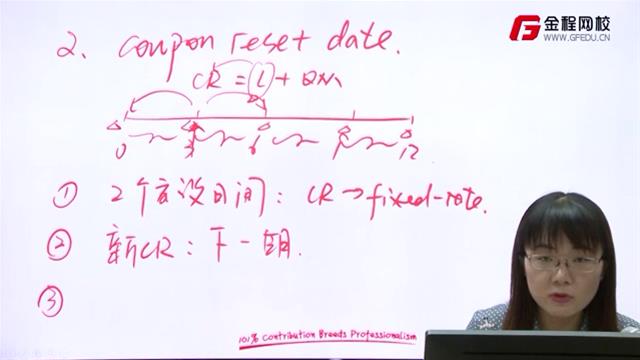 金程网校
WWW.GFEDU.CN
2. coupon reset date.
CR = L + QM
0 3 6 9 12
① 2个重设日间: CR → fixed-rate.
② 新CR: 下一期.
③
101% Contribution Breeds Professionalism